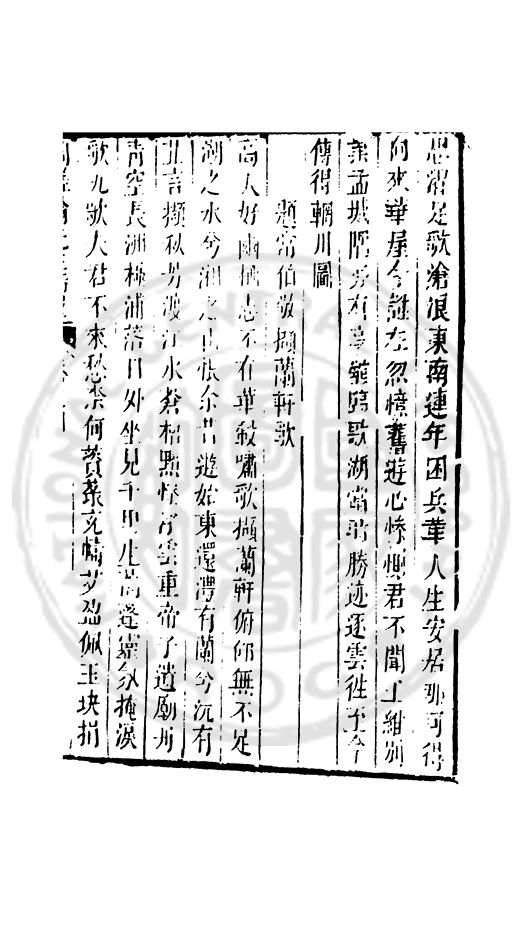 思濯足歌滄浪東南連年困兵革人生安居那可得
何來華屋今誰在忽憶舊遊心慘惻君不聞王維別
業孟城隈亦有裴歌湖當時勝迹逐雲徃至今
傳得輞川圖
題常伯敬擷蘭軒歌
高人好幽栖志不在華轂嘯歌擷蘭軒俯仰無不足
湖之水兮湘之山悵余昔遊始東還澧有蘭兮沅有
芷言擷秋芳渡江水蒼梧點悴浮雲重帝子遺廟丹
青空長洲極浦落日外坐見千里生蒿蓬靈氛掩淚
歌九歌大君不來愁奈何薋菉充幃艾盈佩玉玦捐